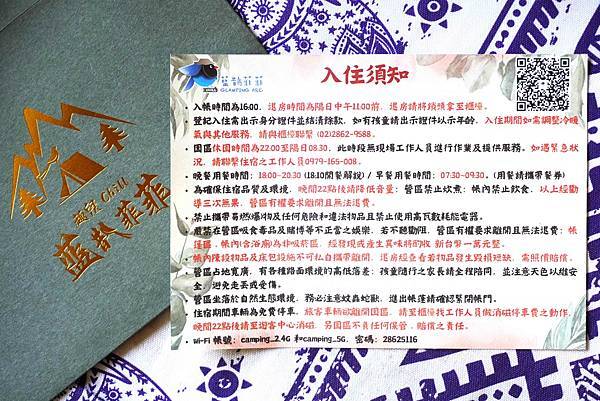 趣森 Chill
藍鵲菲菲
藍鵲菲菲
GLAMPING ARC
入住須知
• 入帳時間為16:00. 退房時間為隔日中午11:00前. 退房請將鎖頭拿至櫃檯.
• 登記入住需出示身分證件並結清餘款. 如有孩童請出示證件以示年齡. 入住期間如需調整冷暖
氣與其他服務. 請與櫃檯聯繫 (02)2862-9588.
• 園區休園時間為22:00至隔日08:30. 此時段無現場工作人員進行作業及提供服務. 如遇緊急狀
況. 請聯繫住宿之工作人員0979-165-008.
• 晚餐用餐時間: 18:00-20:30 (18:10開餐解說) / 早餐用餐時間: 07:30-09:30. (用餐請攜帶餐券)
• 為確保住宿品質及環境. 晚間22點後請降低音量; 營區禁止炊煮; 帳內禁止飲食. 以上經勸
導三次無果. 營區有權要求離開且無法退費.
• 禁止攜帶易燃/爆物及任何危險和違法物品且禁止使用高瓦數耗能電器.
• 嚴禁在營區吸食毒品及賭博等不正當之娛樂. 若不聽勸阻. 營區有權力要求離開且無法退費; 帳
篷區. 帳內(含浴廁)為非吸菸區. 經發現或產生異味將酌收 新台幣一萬元整.
• 帳內陳設物品及床包設施不可私自攜帶離開. 退房經查看若物品發生毀損短缺. 需照價賠償.
• 營區占地寬廣. 有各種路面環境的高低落差; 孩童隨行之家長請全程陪同. 並注意天色以維安
全. 避免走丟或受傷.
• 營區坐落於自然生態環境. 務必注意蚊蟲蛇獸. 進出帳篷請確認緊閉帳門.
• 住宿期間車輛為免費停車. 旅客車輛欲離開園區. 請至櫃檯找工作人員做消磁停車費之動作.
晚間22點後請至迎客中心消磁. 另園區不負任何保管. 賠償之責任.
• Wi-Fi 帳號: camping_2.4G 和camping_5G. 密碼: 28625116